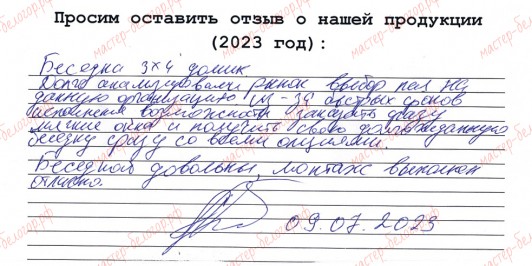 Просим оставить отзыв о нашей продукции
(2023 год):
Беседка 3х4 домик
Долго анализировали рынок выбор пал на
данную организацию из-за быстрых сроков
исполнения возможности заказать сразу
мягкие окна и получить свою долгожданную
беседку сразу со всеми опциями.
Беседкой довольны, монтаж выполнен
отлично.
09.07.2023
мастер-белогор.рф